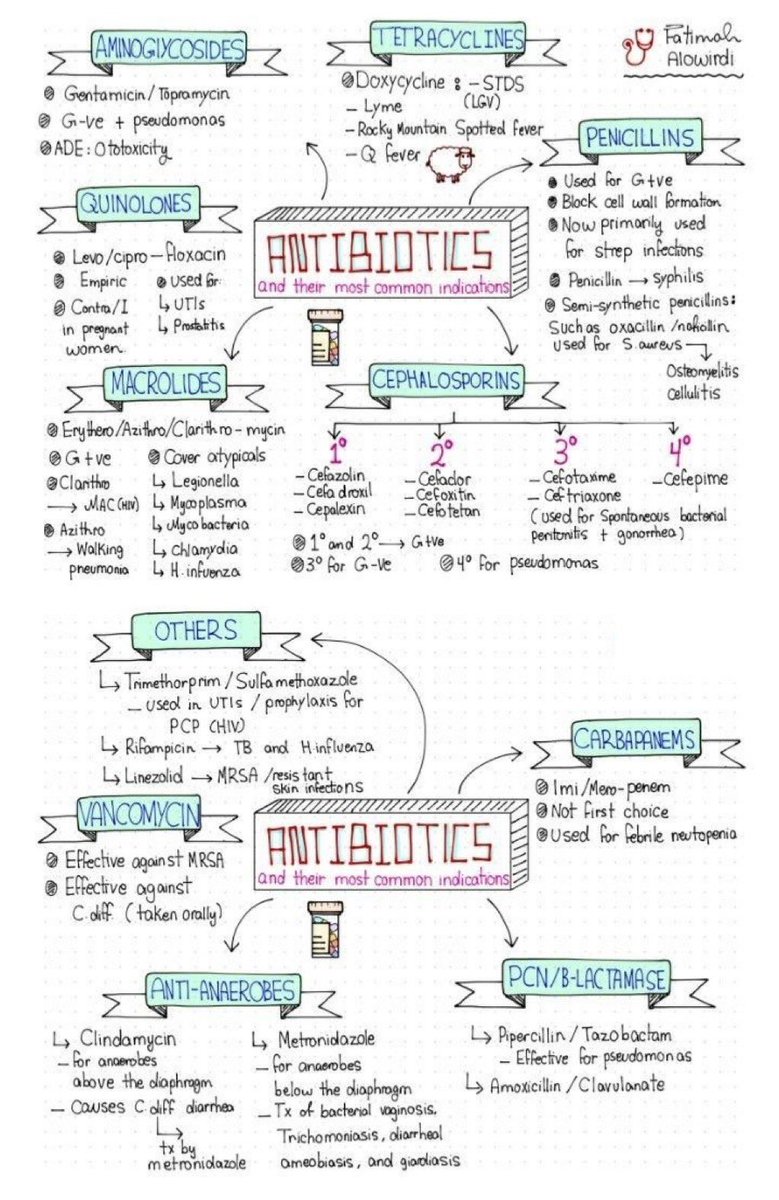 Fatimah
Alowirdi
AMINOGLYCOSIDES
Gentamicin / Topramycin
G-ve + pseudomonas
ADE: Ototoxicity
TETRACYCLINES
Doxycycline : - STDS
(LGV)
- Lyme
- Rocky Mountain Spotted fever
- Q fever
PENICILLINS
Used for G+ve
Block cell wall formation
Now primarily used
for strep infections
Penicillin → syphilis
Semi-synthetic penicillins:
Such as oxacillin /nafcillin
used for S.aureus
Osteomyelitis
cellulitis
QUINOLONES
Levo/cipro - floxacin
Empiric
Contra/I
in pregnant
women.
Used for:
↳ UTIs
↳ Prostatitis
ANTIBIOTICS
and their most common indications
MACROLIDES
Erythero/Azithro/Clarithro - mycin
G+ve
Clarithro
→ MAC (HIV)
Azithro
→ Walking
pneumonia
Cover atypicals
↳ Legionella
↳ Mycoplasma
↳ Mycobacteria
↳ Chlamydia
↳ H. infuenza
CEPHALOSPORINS
1°
- Cefazolin
- Cefa droxil
- Cepalexin
2°
- Cefaclor
- Cefoxitin
- Cefotetan
3°
- Cefotaxime
- Ceftriaxone
(used for Spontaneous bacterial
peritonitis + gonorrhea)
4°
- Cefepime
1° and 2° → G+ve
3° for G-ve
4° for pseudomonas
OTHERS
↳ Trimethorprim / Sulfamethoxazole
- used in UTIs / prophylaxis for
PCP (HIV)
↳ Rifampicin → TB and H.influenza
↳ Linezolid → MRSA /resistant
skin infections
CARBAPANEMS
Imi/Mero-penem
Not first choice
Used for febrile neutopenia
VANCOMYCIN
Effective against MRSA
Effective against
C.diff (taken orally)
ANTIBIOTICS
and their most common indications
ANTI-ANAEROBES
↳ Clindamycin
- for anaerobes
above the diaphragm
- Causes C diff diarrhea
↳ tx by
metronidazole
↳ Metronidazole
- for anaerobes
below the diaphragm
- Tx of bacterial vaginosis,
Trichomoniasis, diarrheal
ameobiasis, and giardiasis
PCN/B-LACTAMASE
↳ Pipercillin / Tazobactam
- Effective for pseudomonas
↳ Amoxicillin / Clavulanate